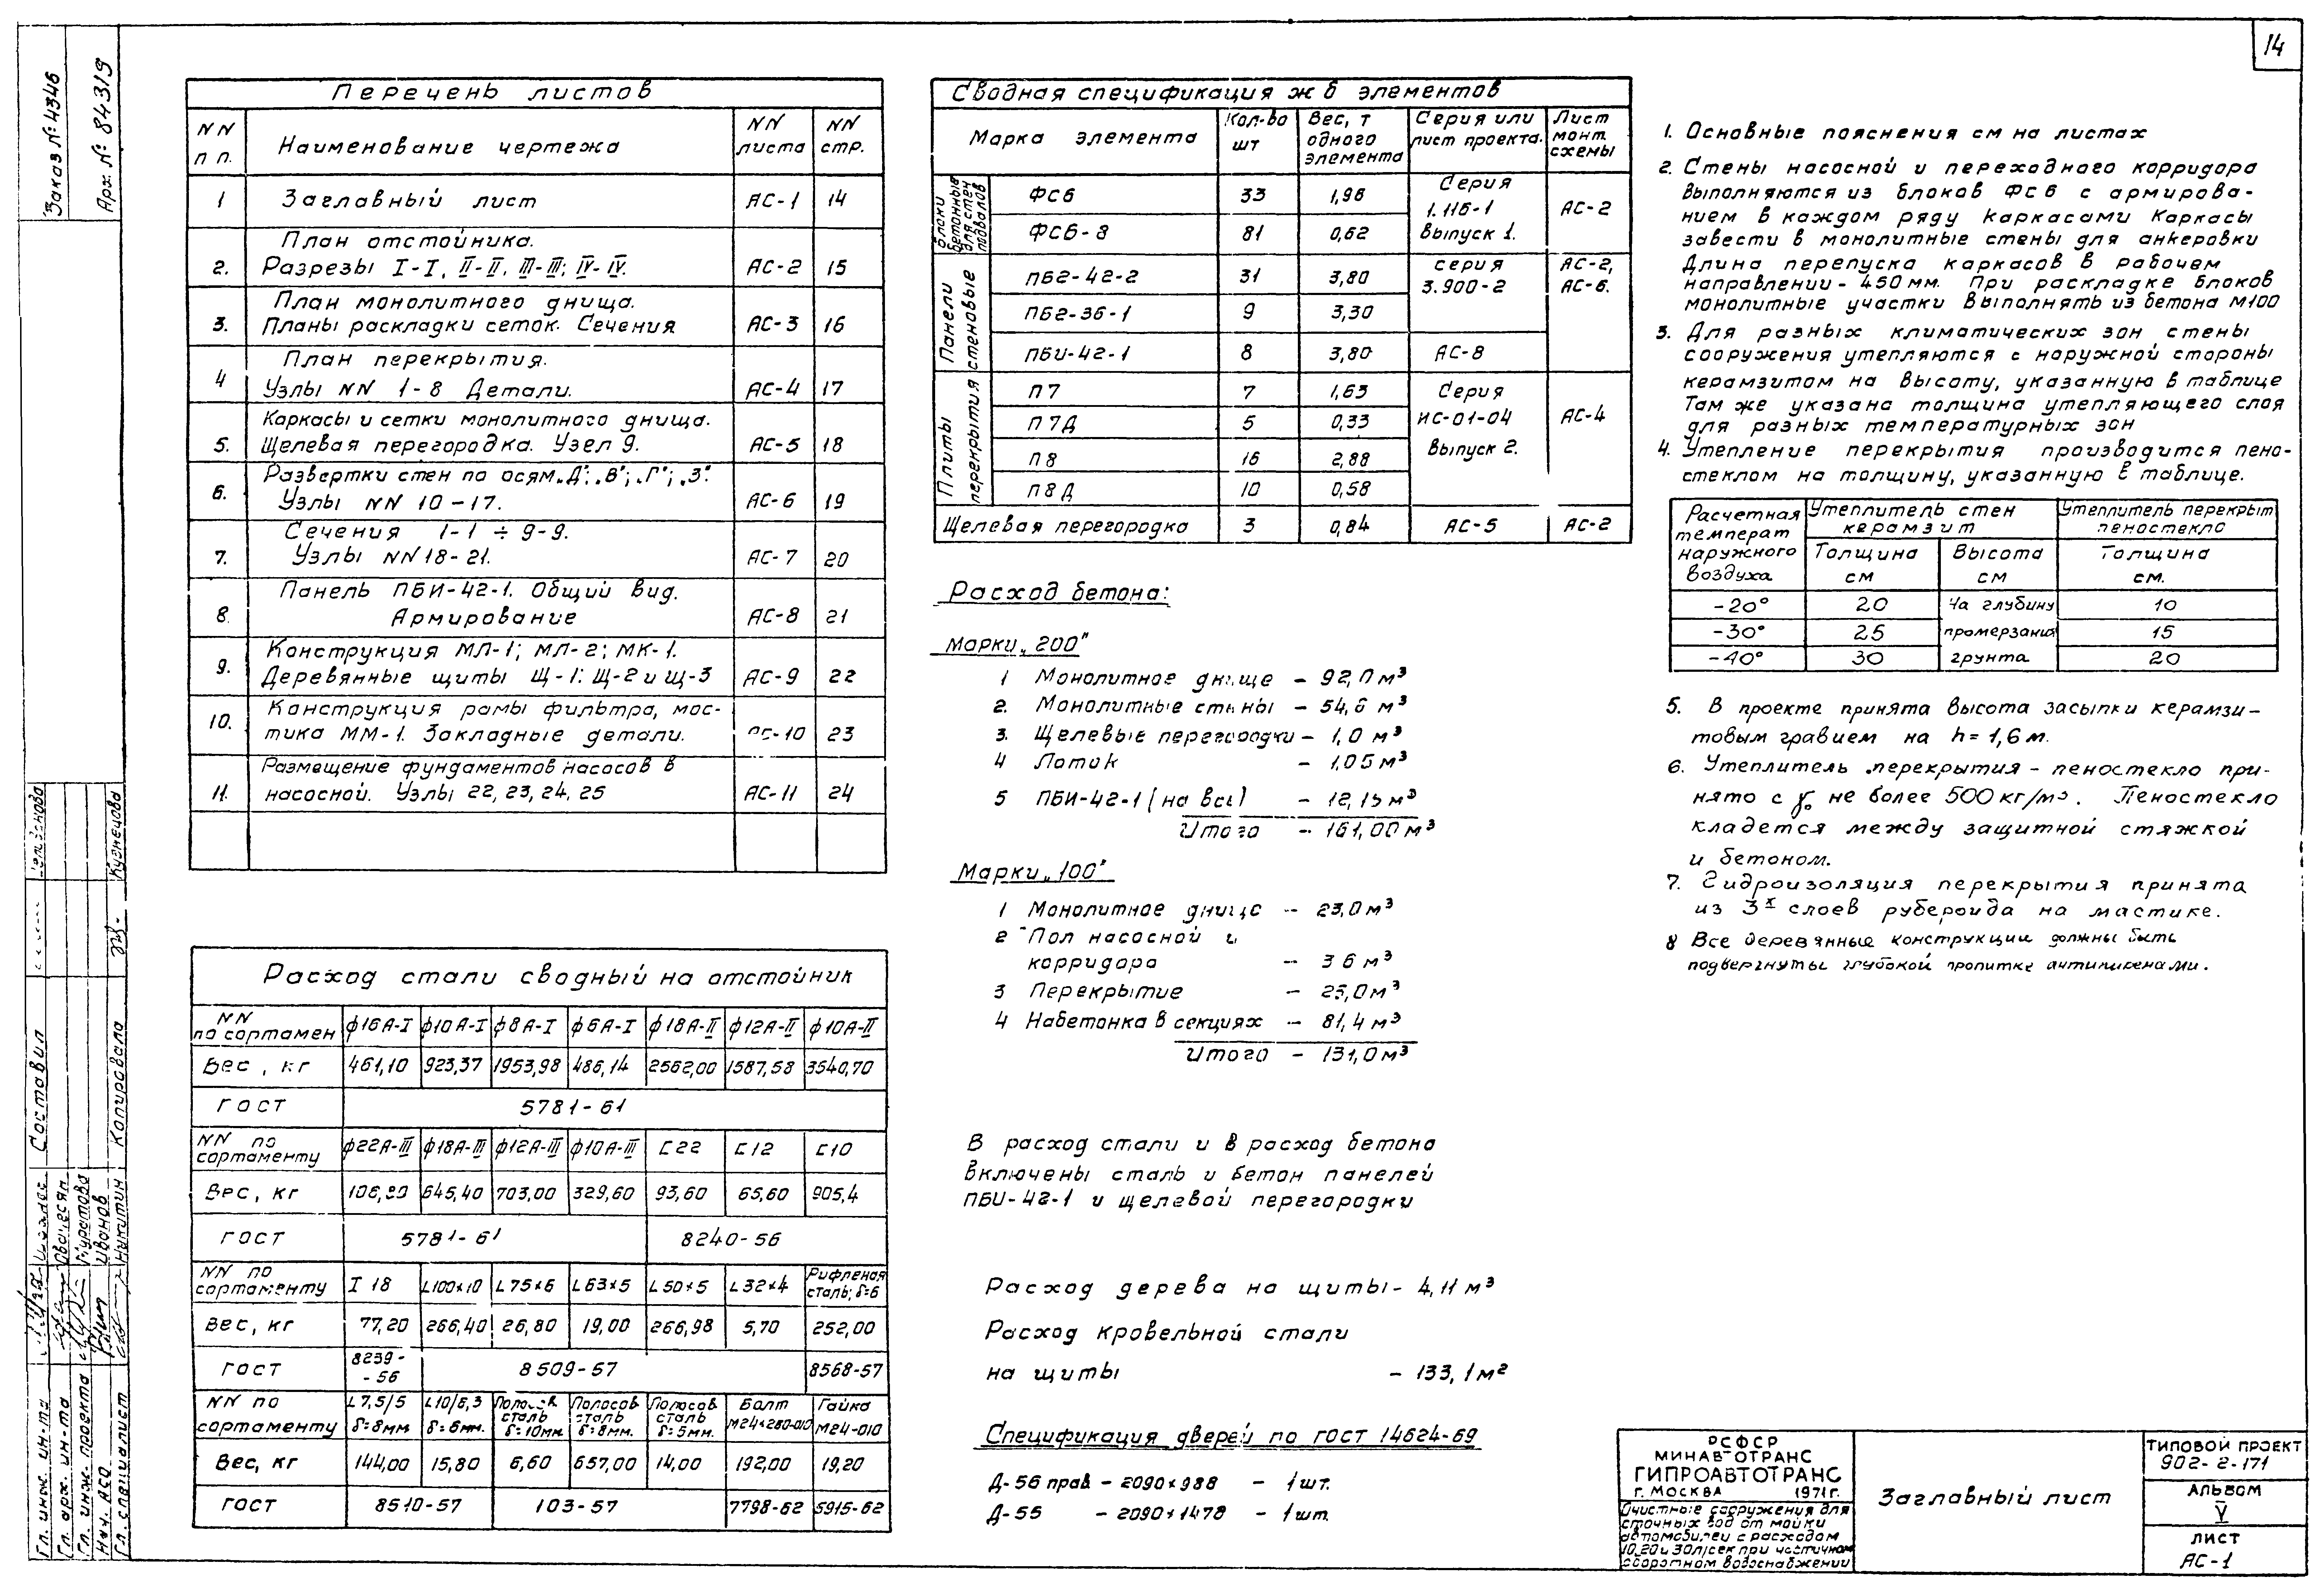 14
Заказ № 4346
Арх. № 84319
Перечень листов
NN п п.
Наименование чертежа
NN листа
NN стр.
1 Заглавный лист АС-1 14
План отстойника.
2. Разрезы I-I, II-II, III-III; IV-IV. АС-2 15
План монолитного днища.
3. Планы раскладки сеток. Сечения АС-3 16
План перекрытия.
4 Узлы NN 1-8 Детали. АС-4 17
Каркасы и сетки монолитного днища.
5. Щелевая перегородка. Узел 9. АС-5 18
Развертки стен по осям „Д"; „В"; „Г"; „З".
6. Узлы NN 10-17. АС-6 19
Сечения 1-1 ÷ 9-9.
7. Узлы NN 18-21. АС-7 20
Панель ПБИ-42-1. Общий вид.
8. Армирование АС-8 21
Конструкция МЛ-1; МЛ-2; МК-1.
9. Деревянные щиты Щ-1; Щ-2 и Щ-3 АС-9 22
Конструкция рамы фильтра, мос-
10. тика ММ-1. Закладные детали. АС-10 23
Размещение фундаментов насосов в
11. насосной. Узлы 22, 23, 24, 25 АС-11 24
Расход стали сводный на отстойник
NN по сортамен ф16А-I ф10А-I ф8А-I ф6А-I ф18А-II ф12А-II ф10А-II
Вес, кг 461,10 923,37 1953,98 486,14 2562,00 1587,58 3540,70
ГОСТ 5781-61
NN по сортаменту ф22А-III ф18А-III ф12А-III ф10А-III С22 С12 С10
Вес, кг 645,40 703,00 329,60 93,60 65,60 905,4
ГОСТ 5781-61 8240-56
NN по сортаменту I 18 L100×10 L75×6 L63×5 L50×5 L32×4 Рифленая сталь; δ=6
Вес, кг 77,20 266,40 26,80 19,00 266,98 5,70 252,00
ГОСТ 8239-56 8509-57 8568-57
NN по сортаменту L7,5/5 δ=8мм L10/6,3 δ=6мм. Полосов сталь δ=10мм Полосов сталь δ=8мм. Полосов сталь δ=5мм. Болт М24×280-010 Гайка М24-010
Вес, кг 144,00 15,80 6,60 657,00 14,00 192,00 19,20
ГОСТ 8510-57 103-57 7798-62 5915-62
Сводная спецификация ж б элементов
Марка элемента
Кол-во шт
Вес, т одного элемента
Серия или лист проекта.
Лист монт. схемы
Блоки бетонные для стен подвалов
ФС6 33 1,96 Серия 1.116-1 выпуск 1. АС-2
ФС6-8 81 0,62
Панели стеновые
ПБ2-42-2 31 3,80 серия 3.900-2 АС-2, АС-6.
ПБ2-36-1 9 3,30
ПБИ-42-1 8 3,80 АС-8
Плиты перекрытия
П7 7 1,63 Серия ИС-01-04 Выпуск 2. АС-4
П7Д 5 0,33
П8 16 2,88
П8Д 10 0,58
Щелевая перегородка 3 0,84 АС-5 АС-2
Расход бетона:
Марки „200"
1 Монолитное днище - 92,0 м³
2. Монолитные стены - 54,6 м³
3. Щелевые перегородки - 1,0 м³
4 Лоток - 1,05 м³
5 ПБИ-42-1 (на все) - 12,15 м³
Итого - 161,00 м³
Марки „100"
1 Монолитное днище - 23,0 м³
2 Пол насосной и
корридора - 3 6 м³
3 Перекрытие - 25,0 м³
4 Набетонка в секциях - 81,4 м³
Итого - 131,0 м³
В расход стали и в расход бетона
включены сталь и бетон панелей
ПБИ-42-1 и щелевой перегородки
Расход дерева на щиты - 4,11 м³
Расход кровельной стали
на щиты - 133,1 м²
Спецификация дверей по ГОСТ 14624-69
Д-56 прав - 2090×988 - 1 шт.
Д-55 - 2090×1478 - 1 шт.
1. Основные пояснения см на листах
2. Стены насосной и переходного корридора
выполняются из блоков ФС6 с армирова-
нием в каждом ряду каркасами Каркасы
завести в монолитные стены для анкеровки
Длина перепуска каркасов в рабочем
направлении - 450 мм. При раскладке блоков
монолитные участки выполнять из бетона М100
3. Для разных климатических зон стены
сооружения утепляются с наружной стороны
керамзитом на высоту, указанную в таблице
Там же указана толщина утепляющего слоя
для разных температурных зон
4. Утепление перекрытия производится пено-
стеклом на толщину, указанную в таблице.
Расчетная температ наружного воздуха
Утеплитель стен керамзит
Утеплитель перекрыт пеностекло
Толщина см
Высота см
Толщина см.
-20° 20 На глубину 10
-30° 25 промерзания 15
-40° 30 грунта 20
5. В проекте принята высота засыпки керамзи-
товым гравием на h=1,6 м.
6. Утеплитель перекрытия - пеностекло при-
нято с γ₀ не более 500 кг/м³. Пеностекло
кладется между защитной стяжкой
и бетоном.
7. Гидроизоляция перекрытия принята
из 3х слоев рубероида на мастике.
8 Все деревянные конструкции должны быть
подвергнуты глубокой пропитке антипиренами.
РСФСР
МИНАВТОТРАНС
ГИПРОАВТОТРАНС
г. МОСКВА 1971 г.
Очистные сооружения для
сточных вод от мойки
автомобилей с расходом
10,20 и 30 л/сек при частичном
оборотном водоснабжении
Заглавный лист
ТИПОВОЙ ПРОЕКТ
902-2-171
АЛЬБОМ
V
ЛИСТ
АС-1
Гл. инж. ин-та
Гл. арх. ин-та
Гл. инж. проекта Муратова
Нач. АСО Иванов
Гл. специалист Никитин
Составил
Копировала Кузнецова